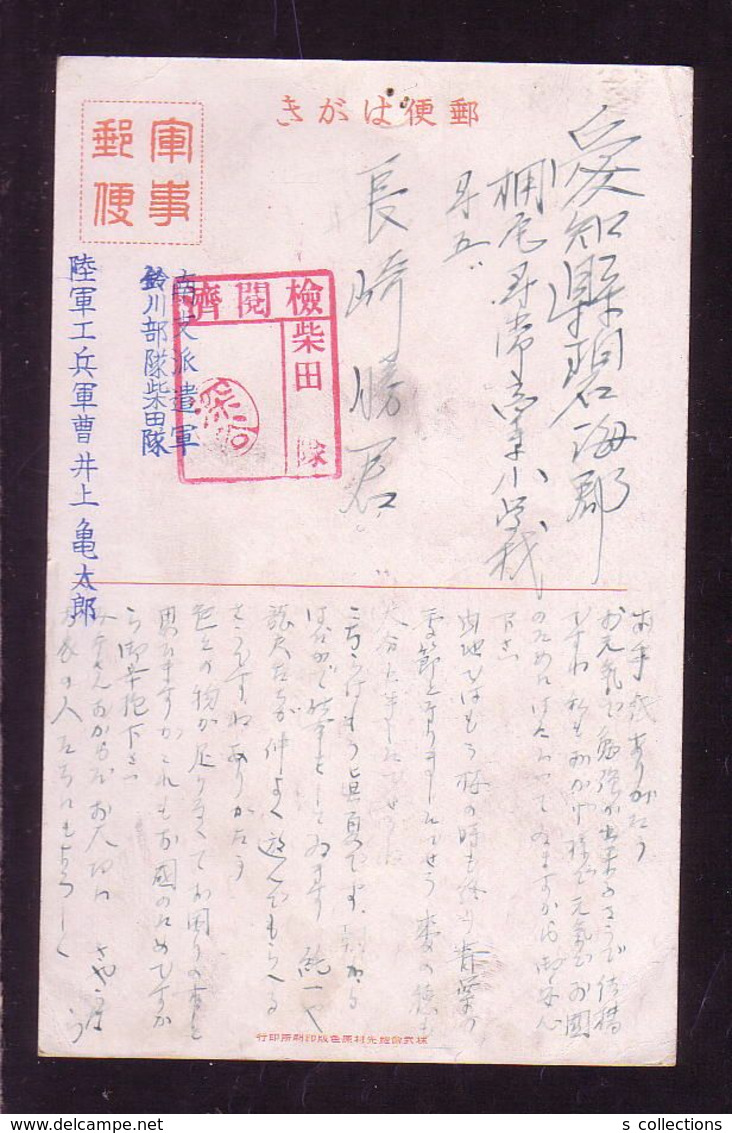 郵便はがき
軍事
郵便
愛知縣碧海郡
棚尾尋常高等小学校
尋五
長崎勝君
檢閲濟
柴田隊
南支派遣軍
鈴川部隊柴田隊
陸軍工兵軍曹井上亀太郎
お手紙ありがたう
お元気で勉強が出来るさうで結構
ですね 私もおかげ様で元気でお國
のためにはたらいてゐますから御安心
下さい
内地ではもう桜の時も終り青葉の
季節となりましたでせう 麦の穂も
大分
こちらはもう真夏です
はだかで仕事をしてゐます 純一や
龍夫たちが仲よく遊んでもらへる
さうですねありがたう
色々の物が足りなくてお困りの事と
思ひますがこれもお國のためですから
御辛抱下さい
お大切に さやうなら
の人たちにもよろしく
s collections